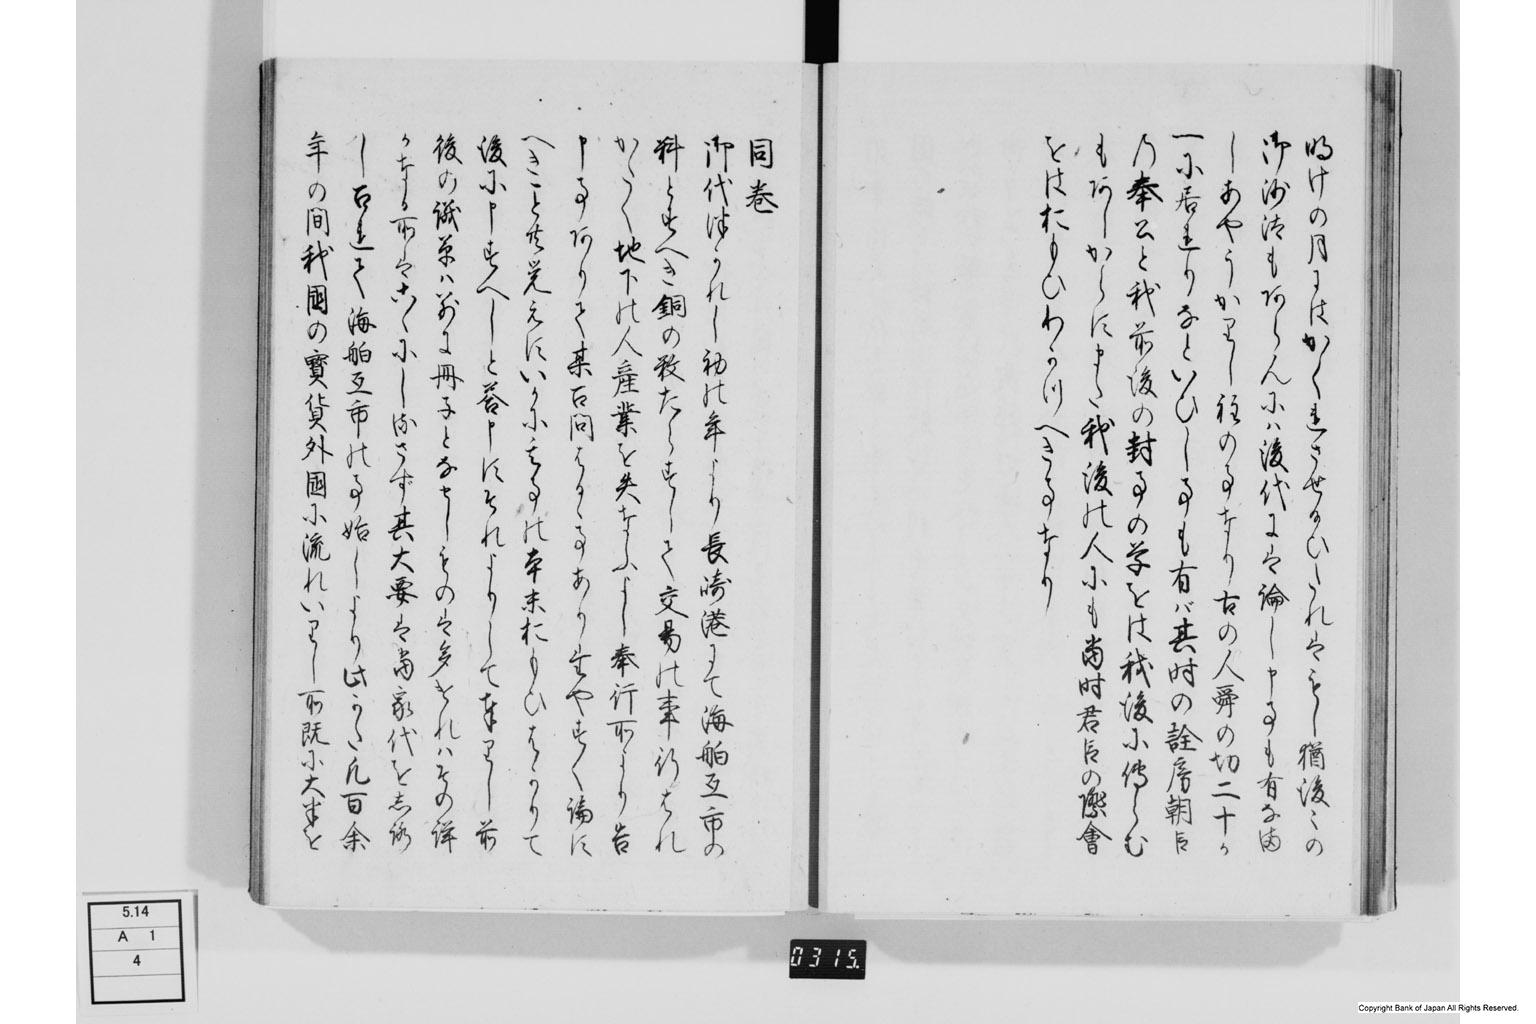 明けの月にはかくれさせ給ひたれは也し猶後々の
御沙汰もあらんには後代には論し申す事も有なま
しあやうかりし程の事なり古の人舜の功二十か
一に居れりなといひし事も有は其時の詮房朝臣
の奉公と我前後の封事の学をは我後に傳ふむ
もあしからしまた我後の人にも當時君臣の際會
をはおもひわかつへき事なり
同巻
御代つかれし初の年より長崎港にて海舶互市の
料とすへき銅の数たらすして交易の事行はれ
かたく地下の人産業を失なふよし奉行所より告
申す事ありて某に問はるる事あり たやすく論し
へきことに覚えしいかにも事の本末おもひはかりて
後に申すへしと答申しそれよりして まいりし前
後の議草は別に冊子となせしものは多けれはその詳
かなる所はここにしるさす其大要は當家代をしろ
し召れて海舶互市の事始しより此かた凡百余
年の間我國の寳貨外國に流れいりし所既に大半を
5.14
A 1
4
0315.
Copyright Bank of Japan All Rights Reserved.